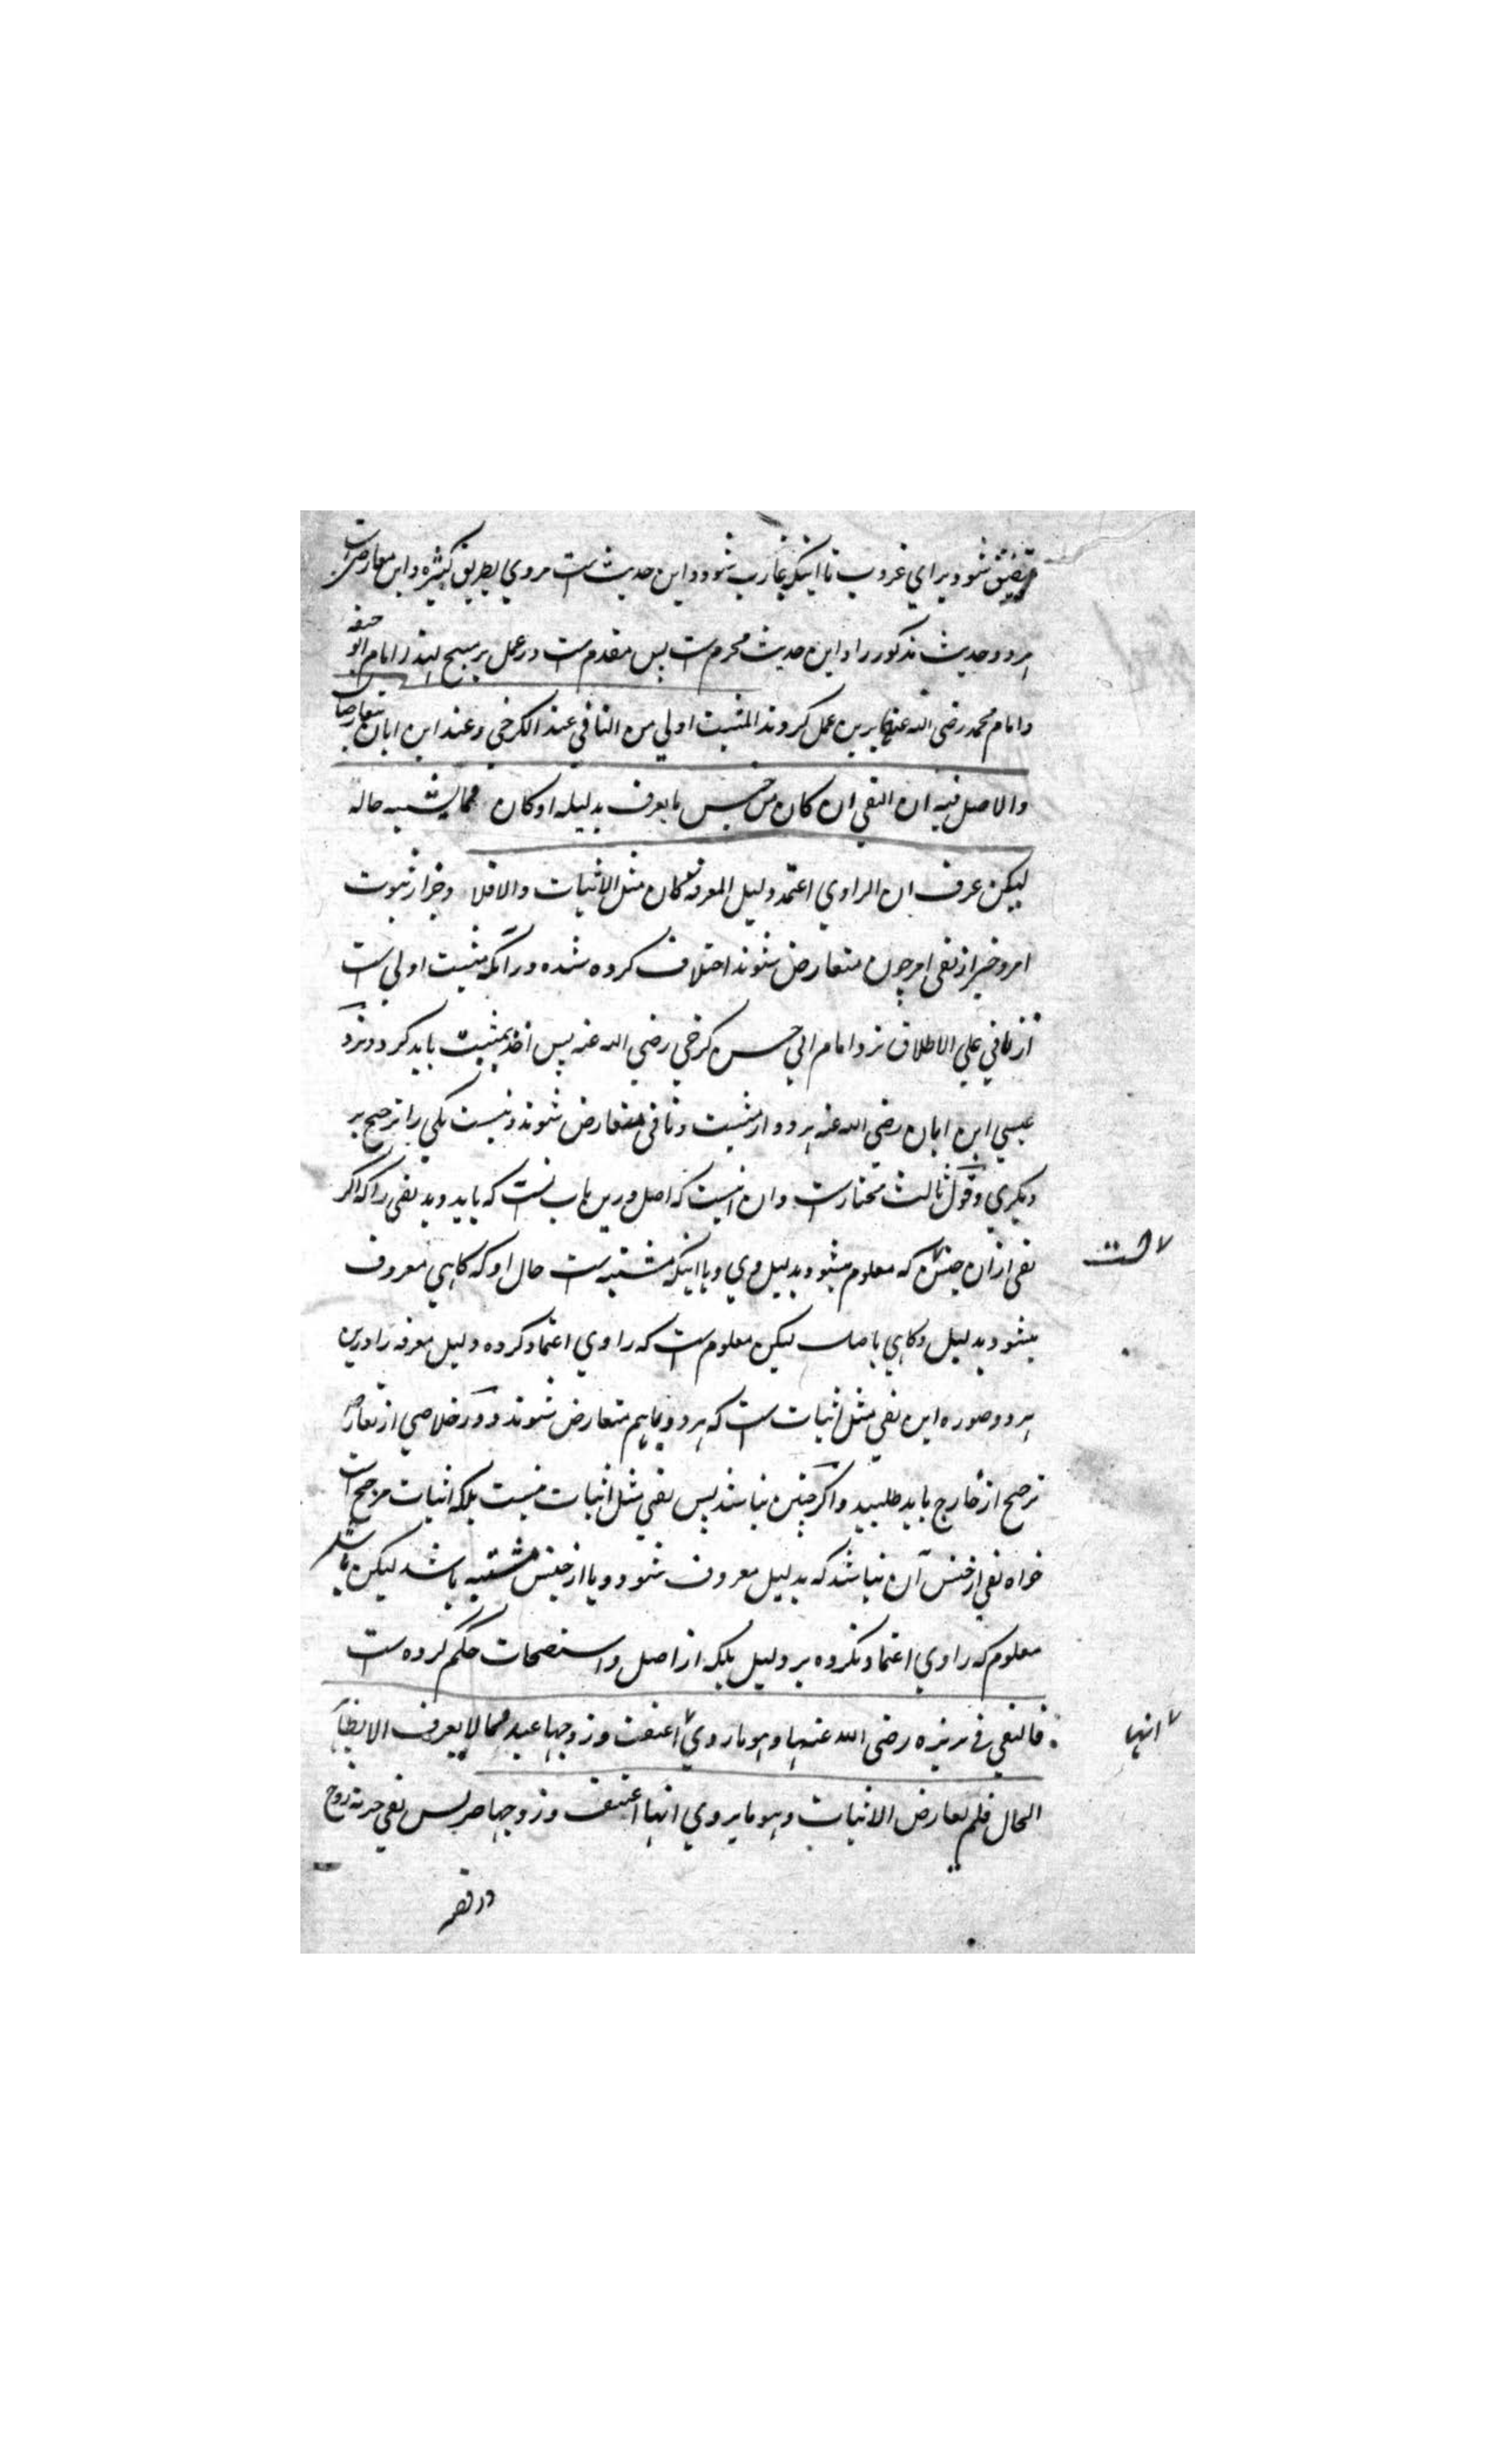 تضیق شود برای غروب تا اینکه غارب شود و این حدیث است مروی بطریق کثیره و این معارض است
هر دو حدیث مذکور را و این حدیث محرم است پس مقدم است در عمل بر مبیح لهذا امام ابو حنیفه
و امام محمد رضی الله عنهما برین عمل کردند المثبت اولی من النافی عند الکرخی و عند ابن ابان یتعارضان
والاصل فیه ان النفی ان کان من جنس ما یعرف بدلیله او کان مما یشتبه حاله
لیکن عرف ان الراوی اعتمد دلیل المعرفة کان مثل الاثبات والا فلا و خبر از ثبوت
امر و خبر از نفی امر چون متعارض شوند اختلاف کرده شده در آنکه مثبت اولی است
از نافی علی الاطلاق نزد امام ابی حسن کرخی رضی الله عنه پس اخذ بمثبت باید کرد و نزد
عیسی ابن ابان رضی الله عنه هر دو از مثبت و نافی متعارض شوند و نیست یکی را ترجیح بر
دیگری و قول ثالث مختار است و ان اینست که اصل درین باب آنست که باید دید نفی را که اگر
نفی ازان جنس است که معلوم میشود بدلیل وی و یا اینکه مشتبه است حال او که گاهی معروف
میشود بدلیل و گاهی باصل لیکن معلوم است که راوی اعتماد کرده دلیل معرفه را درین
هر دو صوره این نفی مثل اثبات است که هر دو باهم متعارض شوند و در خلاصی از تعارض
ترجیح از خارج باید طلبید و اگر چنین نباشد پس نفی مثل اثبات نیست بلکه اثبات مرجح است
خواه نفی از جنس آن نباشد که بدلیل معروف شود و یا از جنس مشتبه باشد لیکن باشد
معلوم که راوی اعتماد نکرده بر دلیل بلکه از اصل و استصحاب حکم کرده است
فالنفی فی بریره رضی الله عنها و هو ما روی انها اعتقت و زوجها عبد مما لا یعرف الا بظاهر
الحال فلم یعارض الاثبات و هو ما یروی انها اعتقت و زوجها حر پس نفی حریة زوج